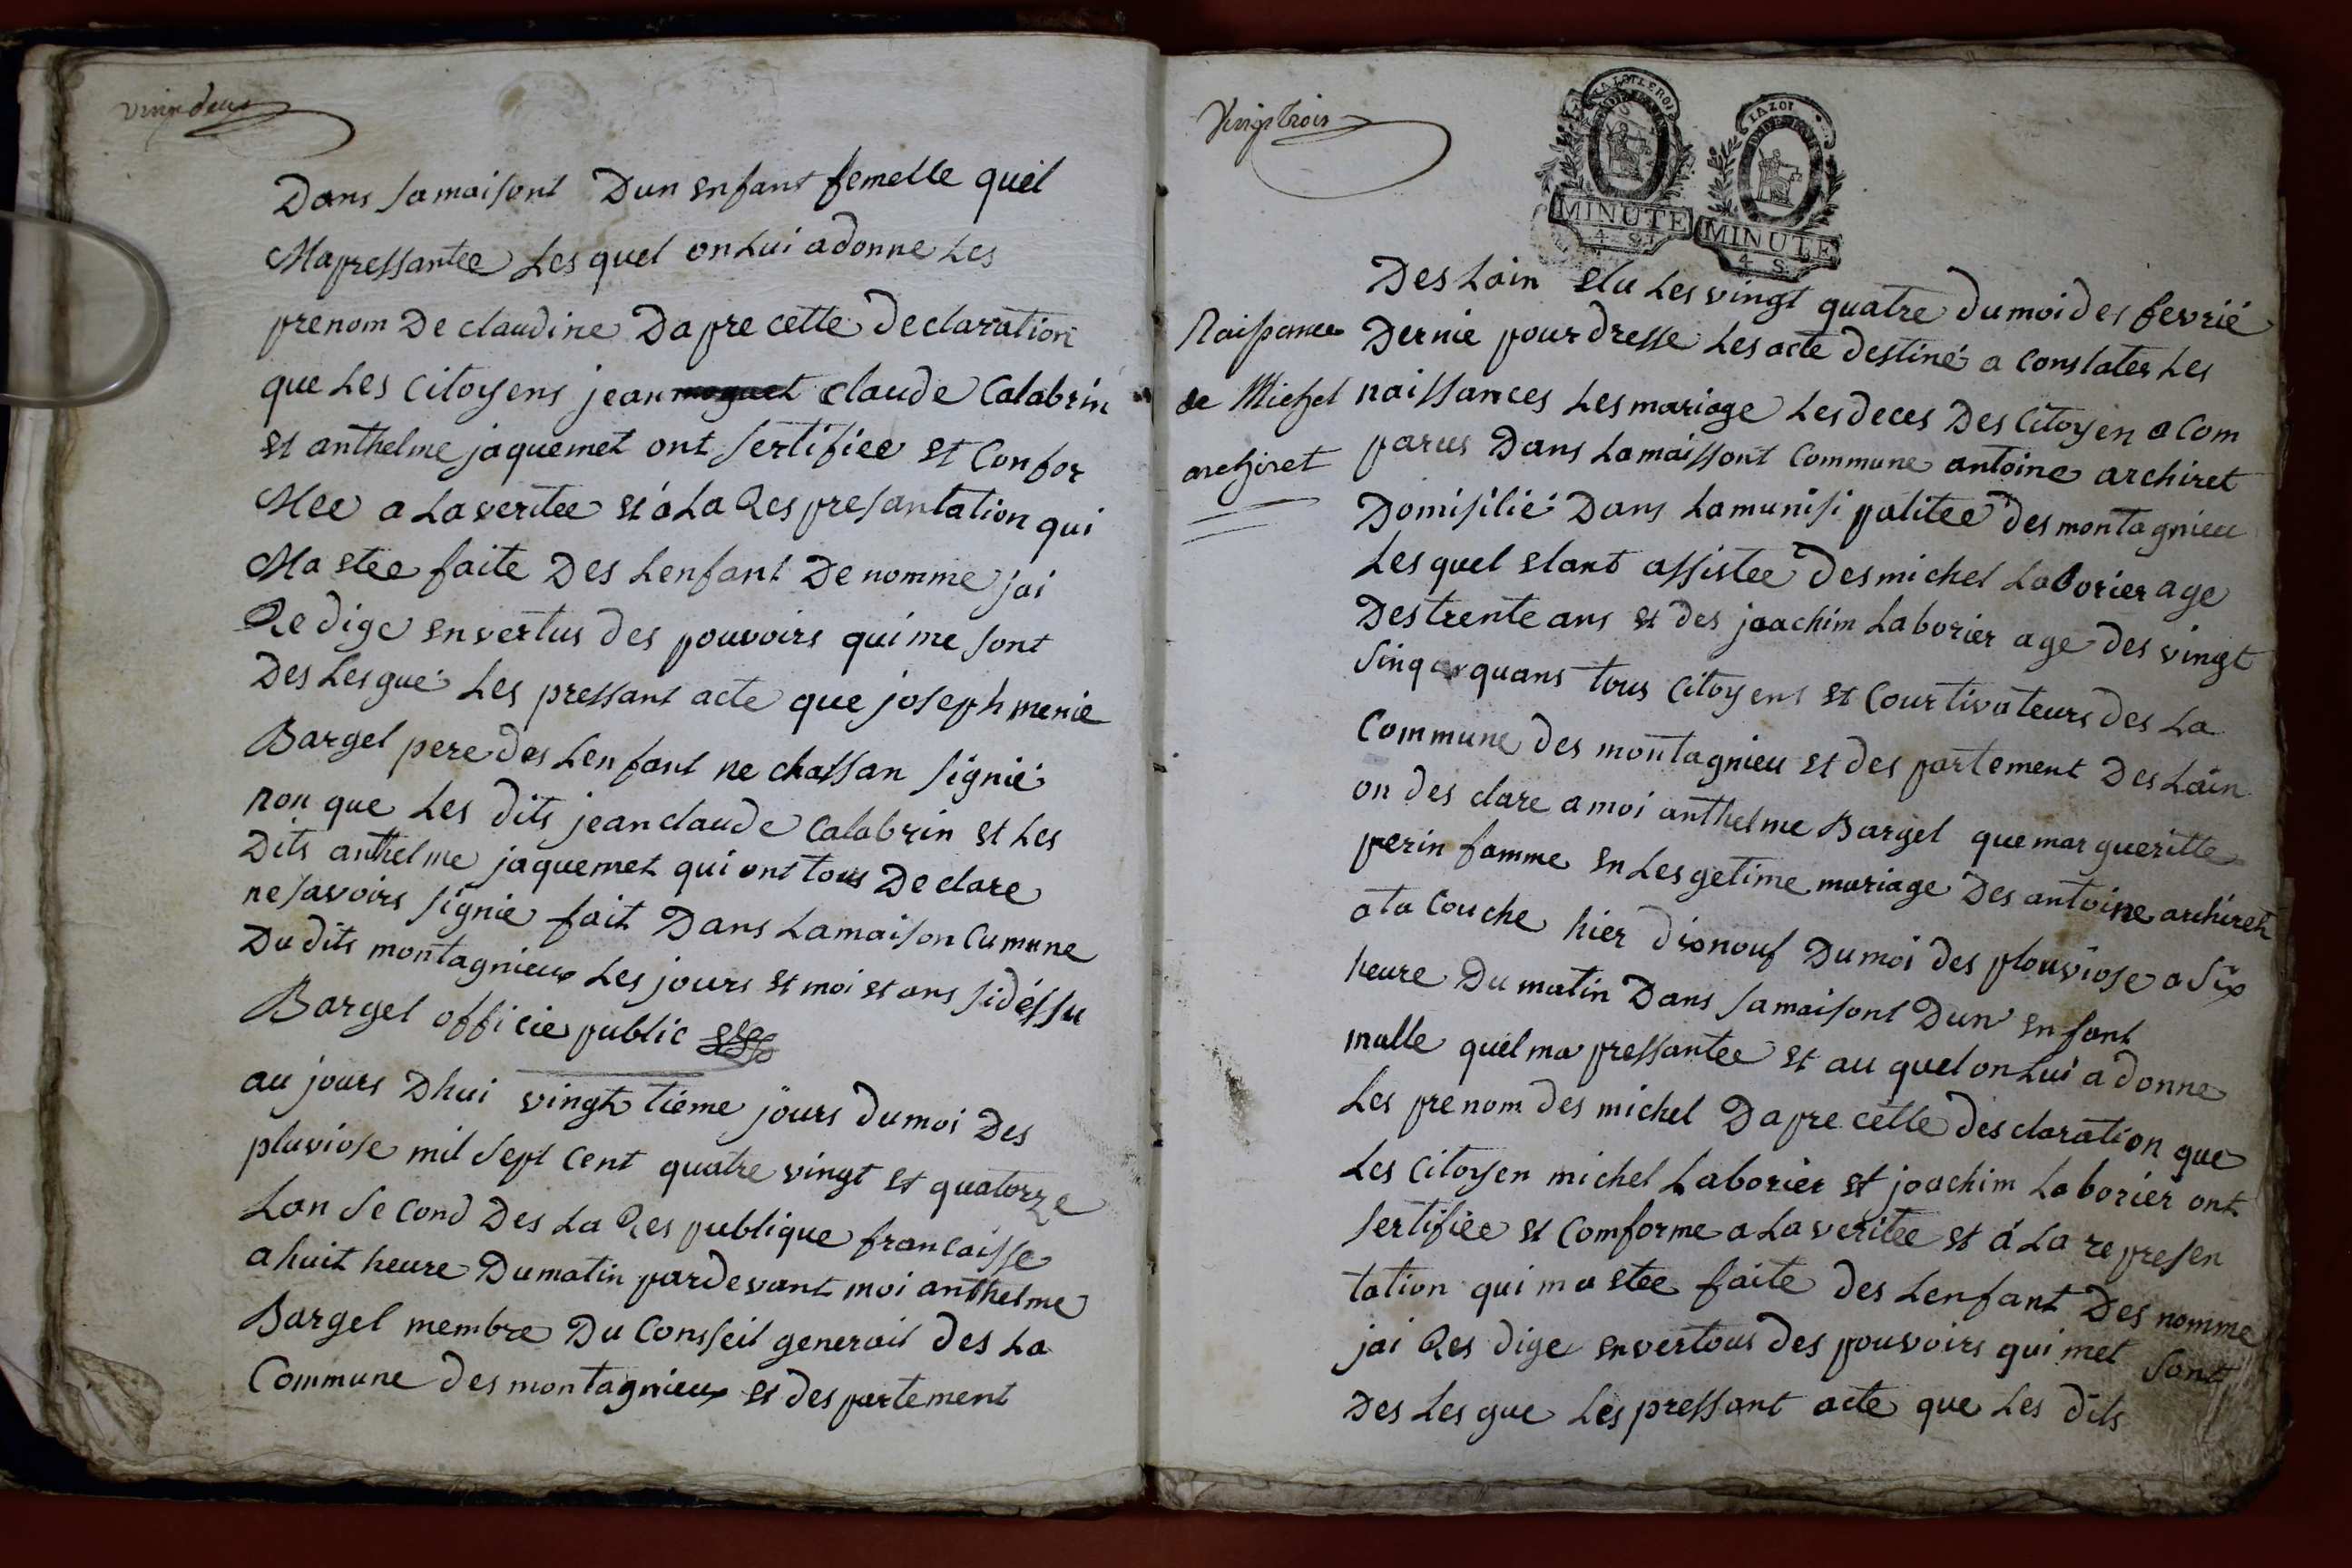 vingt deux
Dans samaisont Dun enfant femelle quel
Mapressantee Les quel on Lui a donne Les
prenom De claudine Dapre cette declaration
que Les citoyens jean claude Calabrin
et anthelme jaquemet ont sertifiee et Confor
Mee a La veritee et a La Respresantation qui
Ma etee faite Des Lenfant De nomme jai
Redige en vertus des pouvoirs qui me sont
Des Les gue Les pressant acte que joseph menie
Bargel pere des Lenfant ne chassan signié
non que Les dits jean claude Calabrin et Les
Dits anthelme jaquemet qui ont tous De clare
ne savoirs signie fait Dans Lamaison Cumune
Du dits montagnieux Les jours et moi et ans sidessu
Bargel officie public
au jours Dhui vingt tiéme jours du moi Des
pluviose mil sept cent quatre vingt et quatorze
Lan se cond Des La Res publique francaisse
a huit heure Dumatin pardevant moi anthelme
Bargel membre Du Consseil generail des La
Commune des montagnieux et des partement
Vingt trois
MINUTE
4 S.
MINUTE
4 S.
Naissance
de Michel
archiret
Des Lain elu Les vingt quatre du moi des fevrié
Dernie pour dresse Les acte destiné a constater Les
naissances Les mariage Les deces Des Citoyen a Com
parus Dans La maissont Commune antoine archiret
Domisilié Dans La munisi palitee des montagnieu
Les quel etant assistee des michel Laborier age
Des trente ans et des joachim Laborier age des vingt
sinq quans tous citoyens et Courtivateurs des La
Commune des montagnieu et des partement Des Lain
on des clare a moi anthelme Bargel que margueritte
perin famme en Les getime mariage Des antoine archiret
a ta Couche hier disnouf Du moi des plouviose a six
heure Du matin Dans samaisont Dun enfant
malle quel ma pressantee et au quel on Lui a donne
Les prenom des michel Dapre cette des claration que
Les citoyen michel Laborier et joachim Laborier ont
sertifiee et Comforme a La veritee et á La represen
tation qui ma etee faite des Lenfant Des nomme
jai Res dige en vertous des pouvoirs qui met sont
Des Les gue Les pressant acte que Les dits